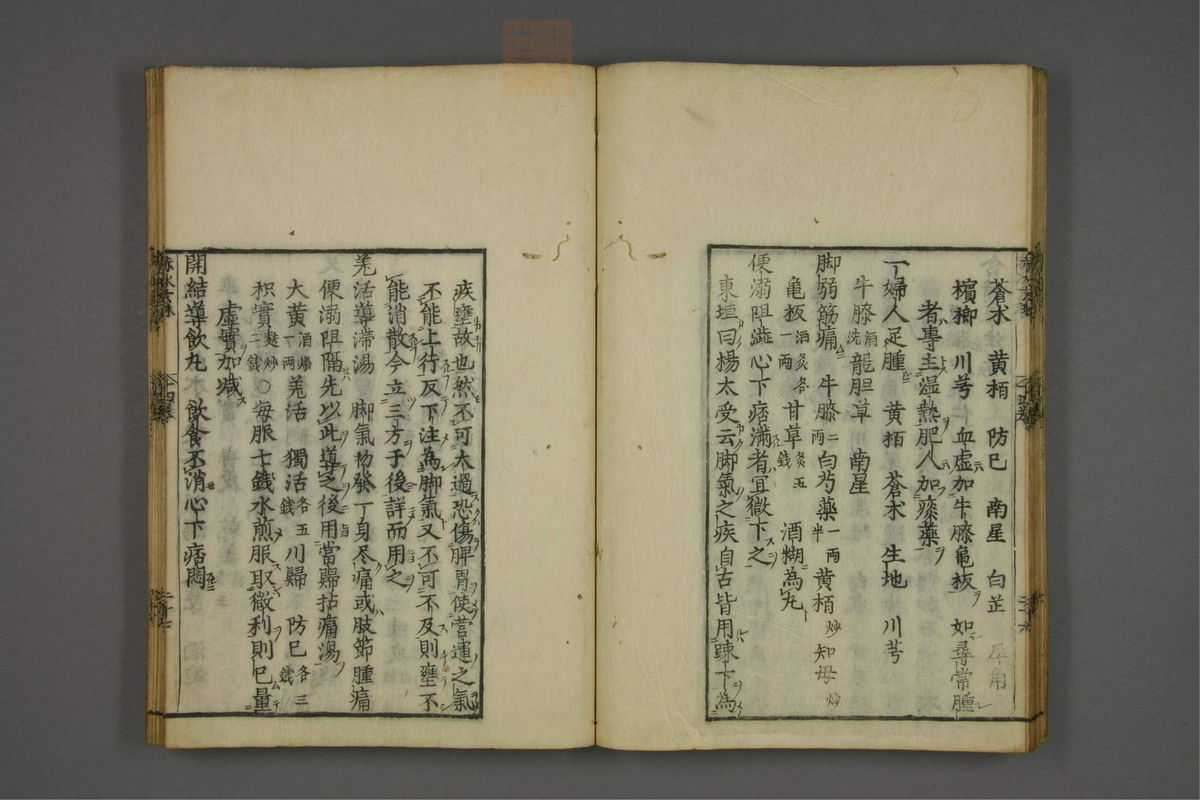 蒼朮 黄栢 防已 南星 白芷 犀角
檳榔 川芎 血虚加牛膝亀板 如尋常腫
者專主湿熱肥人加痰藥
一婦人足腫 黄栢 蒼朮 生地 川芎
牛膝酒洗龍胆草 南星
脚弱筋痛 牛膝二両白芍藥一両半黄栢炒知母炒
亀板酒炙各一両甘草炙五錢 酒糊為丸
便溺阻澁心下痞滿者宜微下之
東垣曰楊太受云脚氣之疾自古皆用踈下為
疾壅故也然不可太過恐傷脾胃使営運之氣
不能上行反下注為脚氣又不可不及則壅不
能消散今立三方于後詳而用之
羌活導滯湯 脚氣初發一身尽痛或肢節腫痛
便溺阻隔先以此導之後用當歸拈痛湯
大黄酒煨一両羌活 獨活各五錢川歸 防已各三錢
枳實麩炒二錢〇毎服七錢水煎服取微利則已量
虚實加减
開結導飲丸 飲食不消心下痞悶